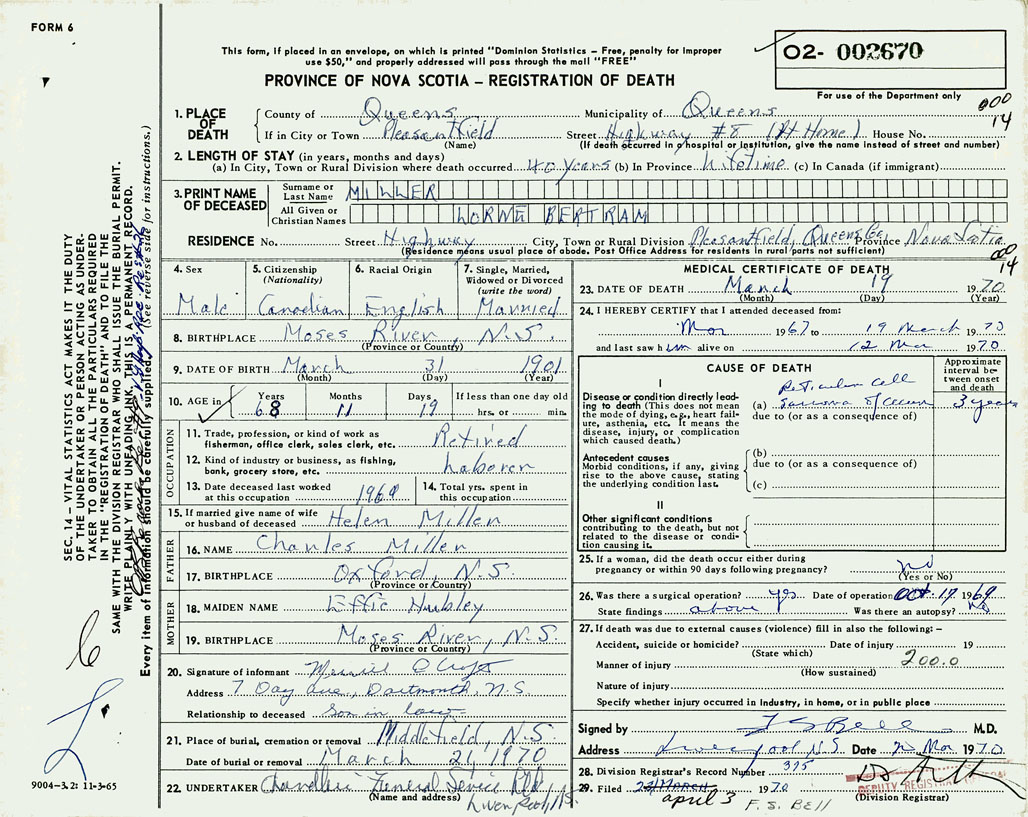 FORM 6
This form, if placed in an envelope, on which is printed "Dominion Statistics – Free, penalty for improper
use $50," and properly addressed will pass through the mail "FREE"
PROVINCE OF NOVA SCOTIA – REGISTRATION OF DEATH
02- 002670
For use of the Department only
000
14
1. PLACE OF DEATH
County of Queens Municipality of Queens
If in City or Town Pleasantfield Street Highway #8 (At Home) House No.
(Name) (If death occurred in a hospital or institution, give the name instead of street and number)
2. LENGTH OF STAY (in years, months and days)
(a) In City, Town or Rural Division where death occurred 40 years (b) In Province Lifetime (c) In Canada (if immigrant)
3. PRINT NAME OF DECEASED
Surname or Last Name MILLER
All Given or Christian Names LORNE BERTRAM
RESIDENCE No. Street Highway City, Town or Rural Division Pleasantfield, Queens Co. Province Nova Scotia
(Residence means usual place of abode. Post Office Address for residents in rural parts not sufficient)
00
14
4. Sex Male
5. Citizenship (Nationality) Canadian
6. Racial Origin English
7. Single, Married, Widowed or Divorced (write the word) Married
8. BIRTHPLACE Moses River, N.S.
(Province or Country)
9. DATE OF BIRTH March 31 1901
(Month) (Day) (Year)
10. AGE in Years 68 Months 11 Days 19 If less than one day old hrs. or min.
OCCUPATION
11. Trade, profession, or kind of work as fisherman, office clerk, sales clerk, etc. Retired
12. Kind of industry or business, as fishing, bank, grocery store, etc. Laborer
13. Date deceased last worked at this occupation 1969
14. Total yrs. spent in this occupation
15. If married give name of wife or husband of deceased Helen Miller
FATHER
16. NAME Charles Miller
17. BIRTHPLACE Oxford, N.S.
(Province or Country)
MOTHER
18. MAIDEN NAME Effie Hubley
19. BIRTHPLACE Moses River, N.S.
(Province or Country)
20. Signature of informant
Address 7 Day Ave., Dartmouth, N.S.
Relationship to deceased son in law
21. Place of burial, cremation or removal Middlefield, N.S.
Date of burial or removal March 21, 1970
22. UNDERTAKER Chandlers Funeral Service Ltd
(Name and address) Liverpool N.S.
MEDICAL CERTIFICATE OF DEATH
23. DATE OF DEATH March 19 1970
(Month) (Day) (Year)
24. I HEREBY CERTIFY that I attended deceased from:
Mar 1967 to 19 March 1970
and last saw him alive on 12 Mar 1970
CAUSE OF DEATH
Approximate interval between onset and death
I
Disease or condition directly leading to death (This does not mean the mode of dying, e.g., heart failure, asthenia, etc. It means the disease, injury, or complication which caused death.)
(a) Reticulum Cell Sarcoma of Cecum 3 years
due to (or as a consequence of)
Antecedent causes
Morbid conditions, if any, giving rise to the above cause, stating the underlying condition last.
(b)
due to (or as a consequence of)
(c)
II
Other significant conditions
contributing to the death, but not related to the disease or condition causing it.
25. If a woman, did the death occur either during pregnancy or within 90 days following pregnancy? no
(Yes or No)
26. Was there a surgical operation? yes Date of operation Oct. 17 1969
State findings above Was there an autopsy? No
27. If death was due to external causes (violence) fill in also the following: –
Accident, suicide or homicide? Date of injury 19
(State which)
Manner of injury 200.0
(How sustained)
Nature of injury
Specify whether injury occurred in industry, in home, or in public place
Signed by F S Bell M.D.
Address Liverpool N.S. Date 20 Mar 1970
28. Division Registrar's Record Number 395
29. Filed april 3 1970
F. S. BELL
DEPUTY REGISTRAR
(Division Registrar)
SEC. 14 – VITAL STATISTICS ACT MAKES IT THE DUTY
OF THE UNDERTAKER OR PERSON ACTING AS UNDER-
TAKER TO OBTAIN ALL THE PARTICULARS REQUIRED
IN THE "REGISTRATION OF DEATH" AND TO FILE THE
SAME WITH THE DIVISION REGISTRAR WHO SHALL ISSUE THE BURIAL PERMIT.
WRITE PLAINLY WITH UNFADING INK. THIS IS A PERMANENT RECORD.
Every item of information should be carefully supplied. (See reverse side for instructions.)
9004–3.2: 11-3-65